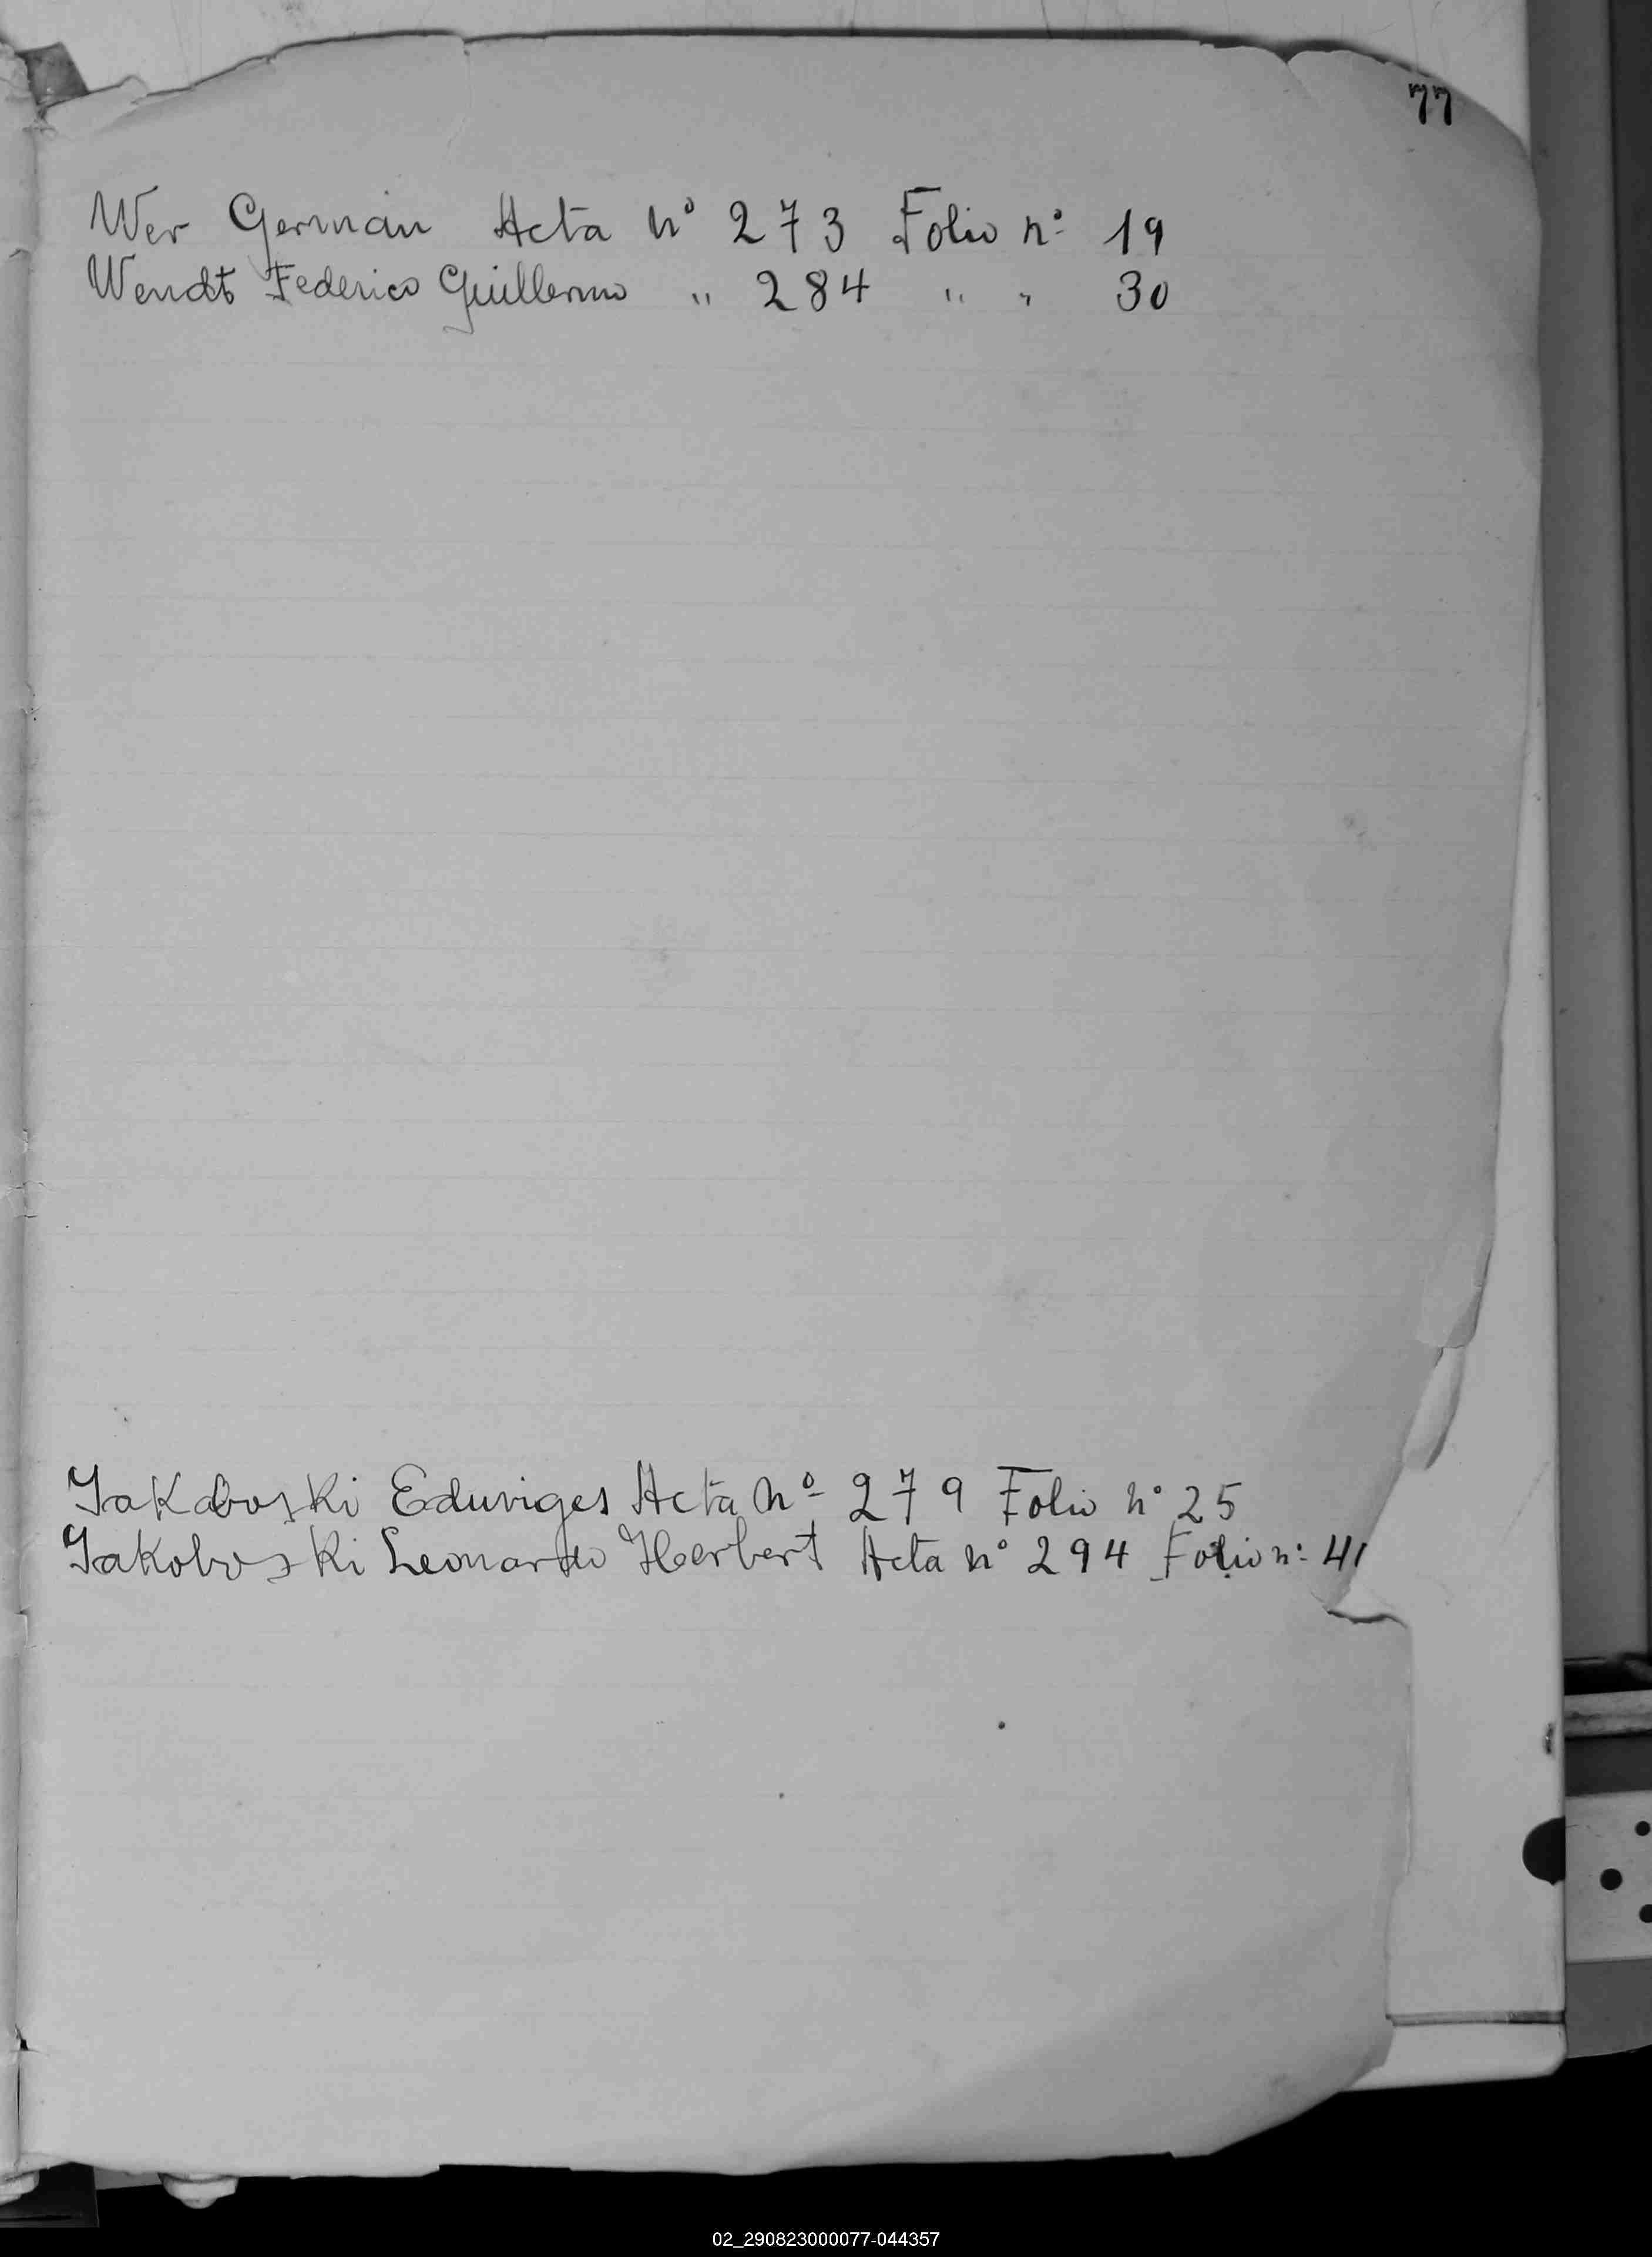 77
Wer German Acta nº 273 Folio nº 19
Wendt Federico Guillermo " 284 " " 30
Yakoboski Eduviges Acta Nº 279 Folio nº 25
Yakoboski Leonardo Herbert Acta nº 294 Folio nº 41
02_290823000077-044357